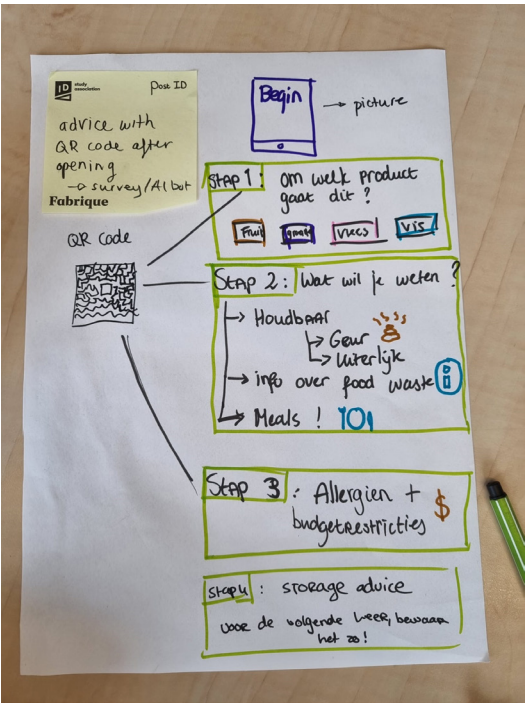 ID study association
Post ID
advice with
QR code after
opening
→ survey/AI bot
Fabrique
Begin
→ picture
QR code
Stap 1: om welk product
gaat dit?
Fruit
vlees
vis
Stap 2: Wat wil je weten?
→ Houdbaar
→ Geur
→ Uiterlijk
→ info over food waste i
→ Meals!
Stap 3: Allergien + $
budgetrestricties
stap 4: storage advice
voor de volgende keer, bewaar
het zo!